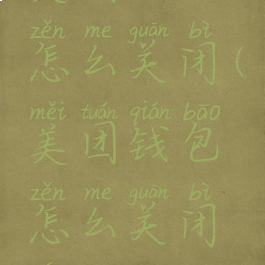 zěn me guān bì
怎么关闭(
měi tuán qián bāo
美团钱包
zěn me guān bì
怎么关闭